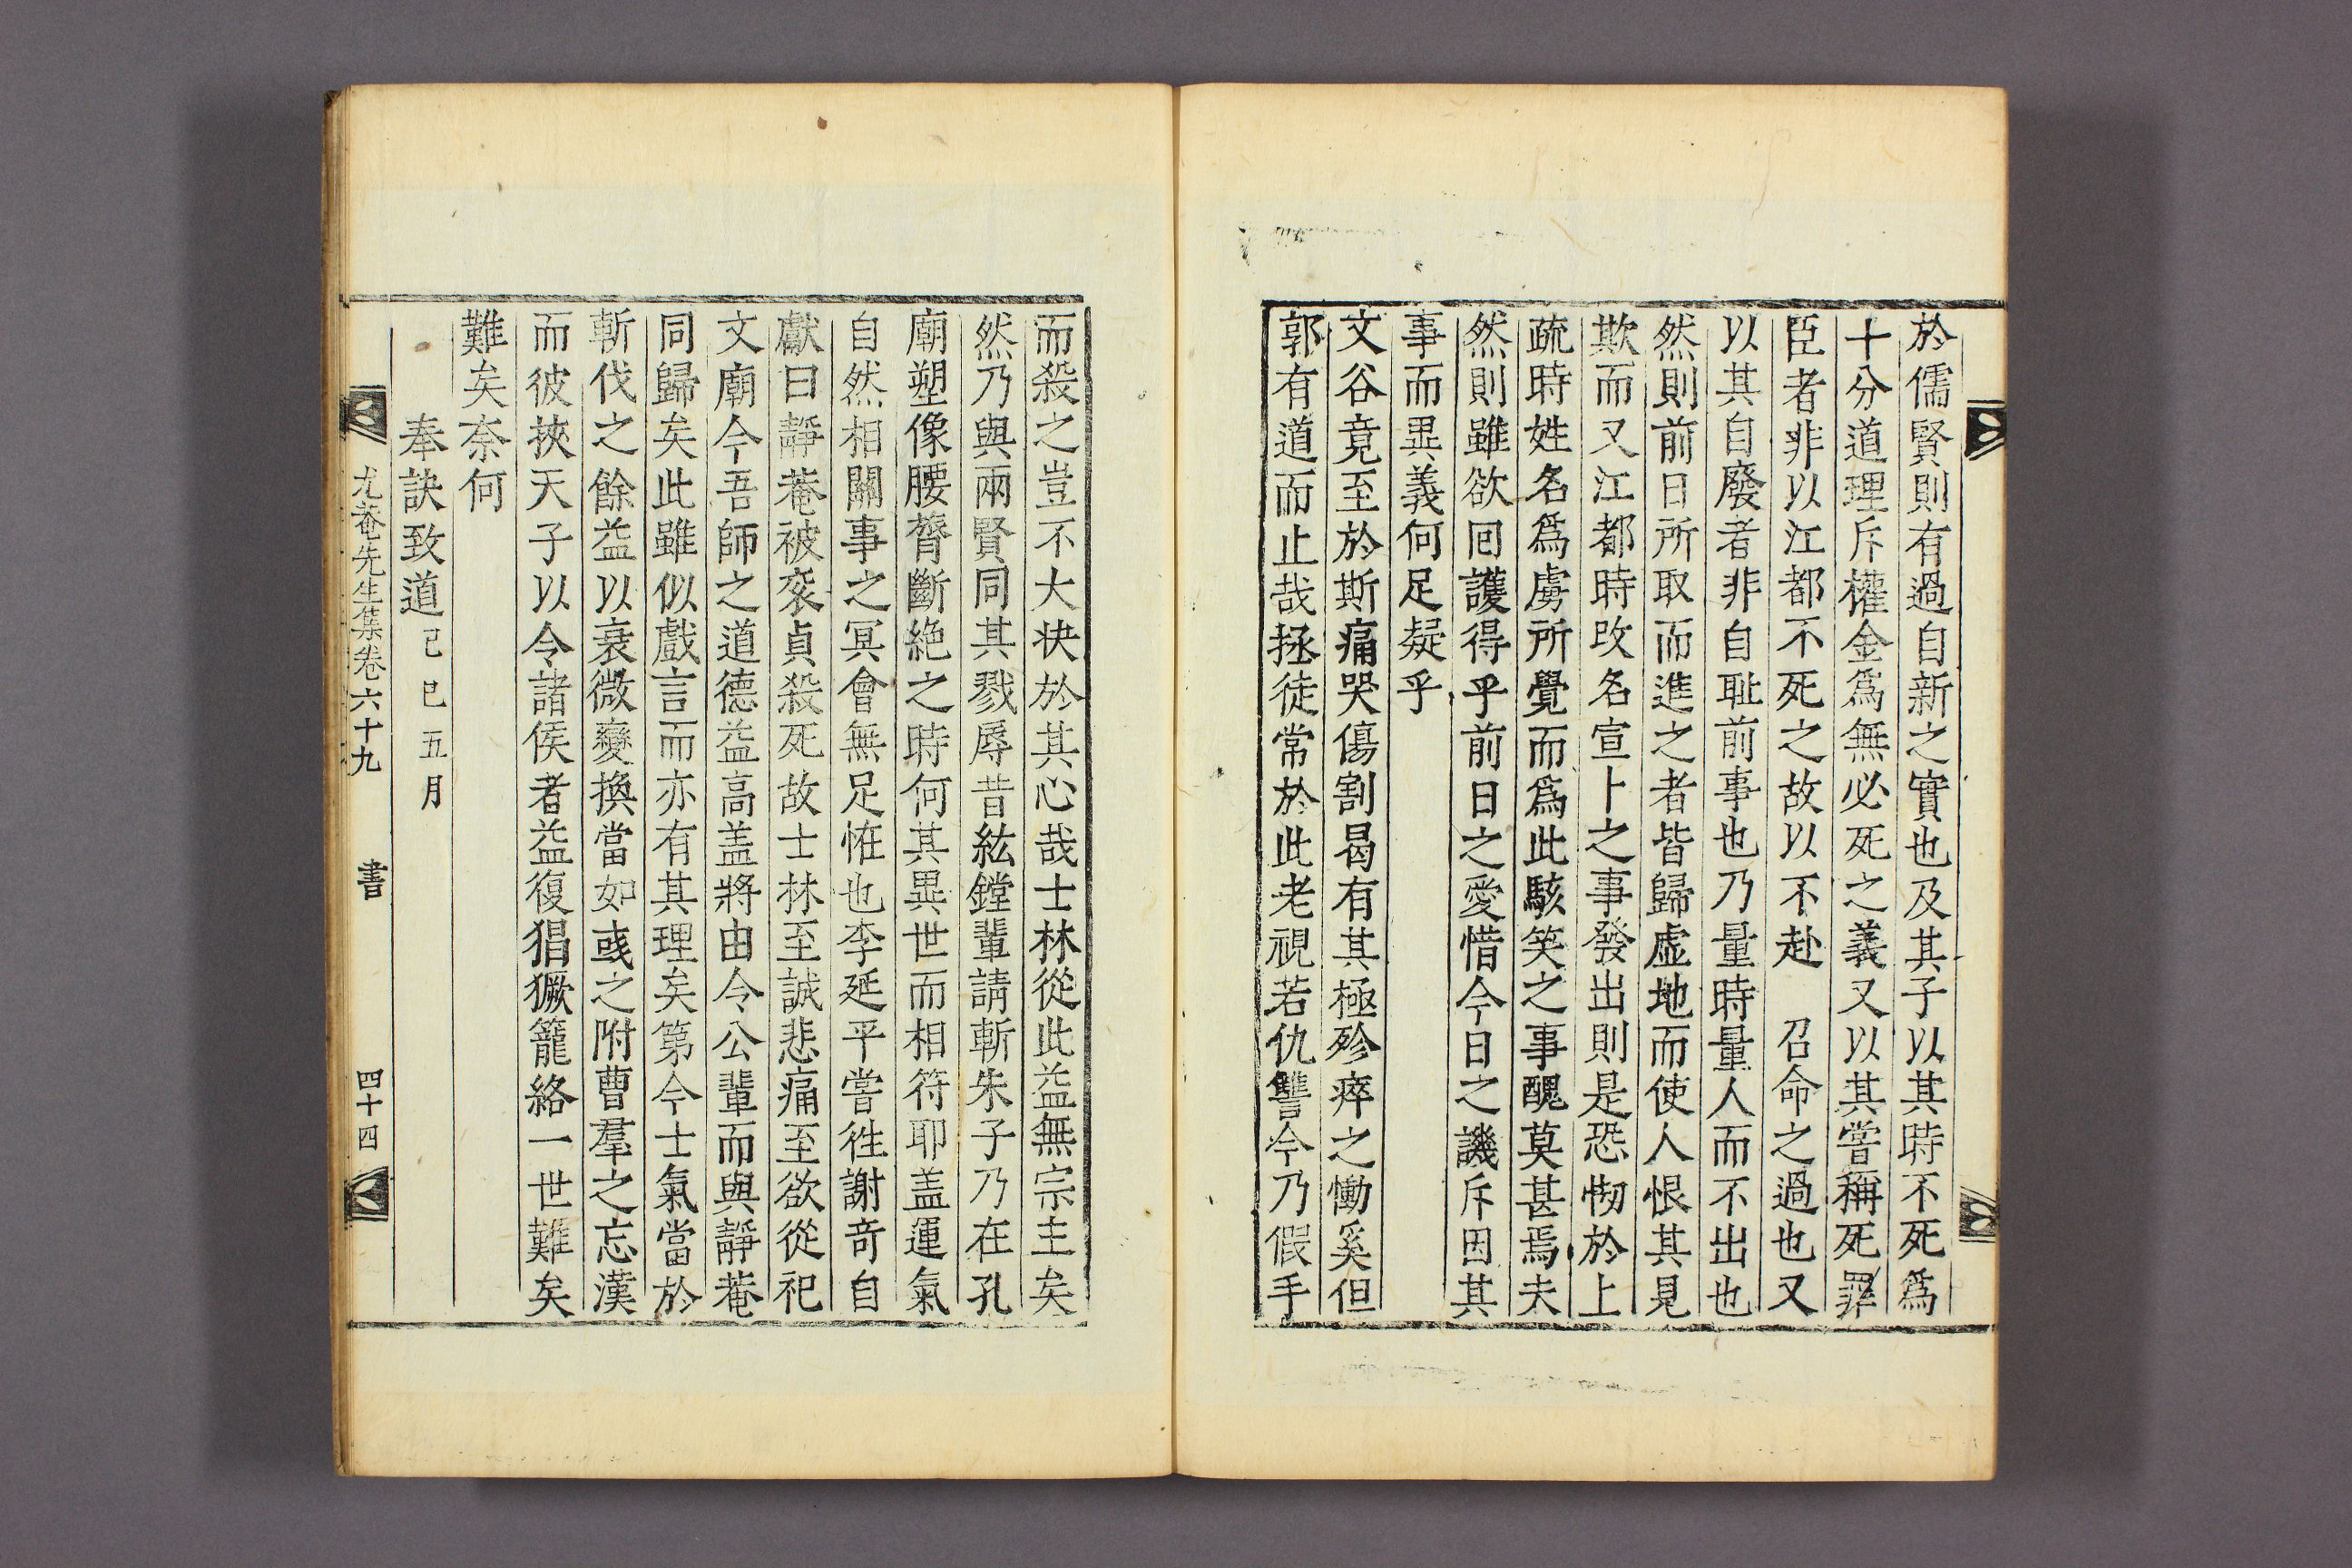 於儒賢則有過自新之實也及其子以其時不死爲
十分道理斥權金爲無必死之義又以其嘗稱死罪
臣者非以江都不死之故以不赴　召命之過也又
以其自廢者非自耻前事也乃量時量人而不出也
然則前日所取而進之者皆歸虛地而使人恨其見
欺而又江都時改名宣卜之事發出則是恐㤼於上
疏時姓名爲虜所覺而爲此駭笑之事醜莫甚焉夫
然則雖欲回護得乎前日之愛惜今日之譏斥因其
事而異義何足疑乎
文谷竟至於斯痛哭傷割曷有其極殄瘁之慟奚但
郭有道而止哉拯徒常於此老視若仇讐今乃假手
而殺之豈不大快於其心哉士林從此益無宗主矣
然乃與兩賢同其戮辱昔紘鏜輩請斬朱子乃在孔
廟塑像腰膂斷絶之時何其異世而相符耶盖運氣
自然相關事之冥會無足恠也李延平嘗徃謝奇自
獻曰靜菴被衮貞殺死故士林至誠悲痛至欲從祀
文廟今吾師之道德益高盖將由今公輩而與靜菴
同歸矣此雖似戲言而亦有其理矣第今士氣當於
斬伐之餘益以衰微變換當如彧之附曹羣之忘漢
而彼挾天子以令諸侯者益復猖獗籠絡一世難矣
難矣奈何
奉訣致道己巳五月
尤菴先生集卷六十九　書　四十四